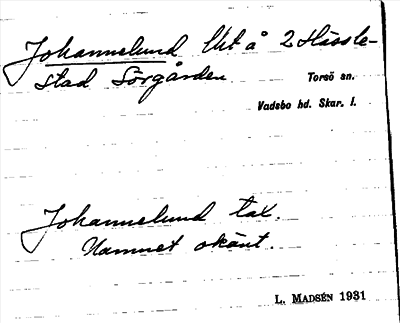 Johannelund Utå 2 Hassle-
stad Sörgården
Torsö sn.
Vadsbo hd. Skar. l.
Johannelund tax.
Namnet okänt.
L. MADSÉN 1931